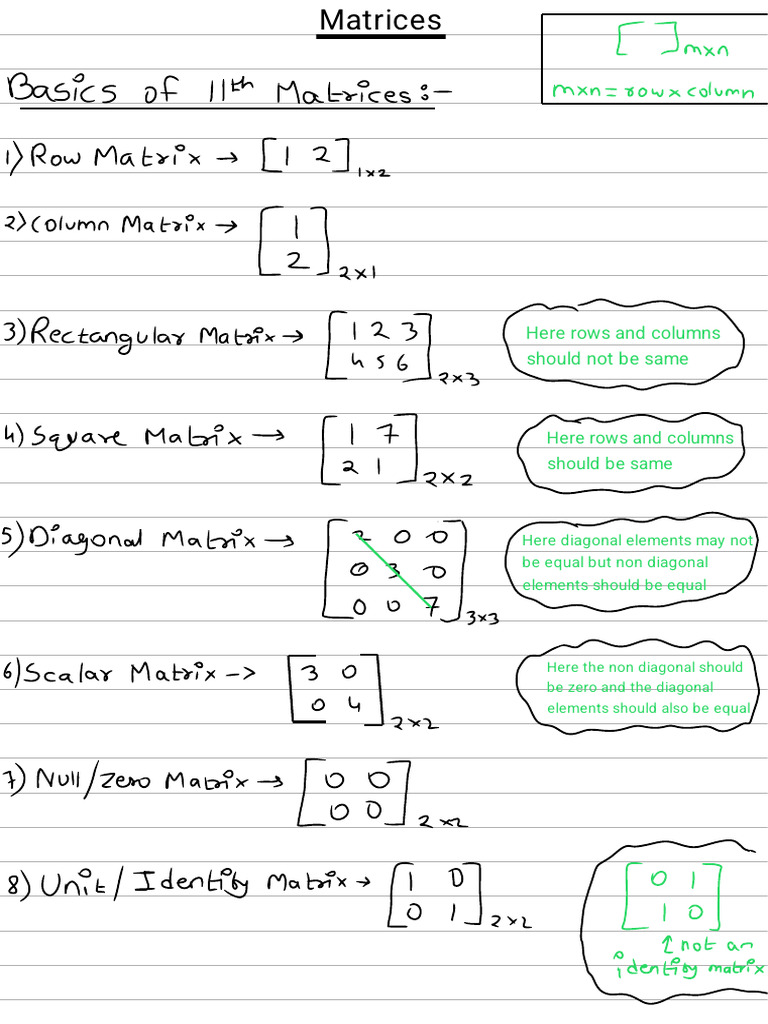 Matrices
[ ] mxn
mxn = row x column
Basics of 11th Matrices:-
1) Row Matrix → [1 2] 1x2
2) Column Matrix → [1
2] 2x1
3) Rectangular Matrix → [1 2 3
4 5 6] 2x3
Here rows and columns
should not be same
4) Square Matrix → [1 7
2 1] 2x2
Here rows and columns
should be same
5) Diagonal Matrix → [2 0 0
0 3 0
0 0 7] 3x3
Here diagonal elements may not
be equal but non diagonal
elements should be equal
6) Scalar Matrix -> [3 0
0 4] 2x2
Here the non diagonal should
be zero and the diagonal
elements should also be equal
7) Null/Zero Matrix → [0 0
0 0] 2x2
8) Unit/Identity Matrix → [1 0
0 1] 2x2
[0 1
1 0]
↑ not an
identity matrix